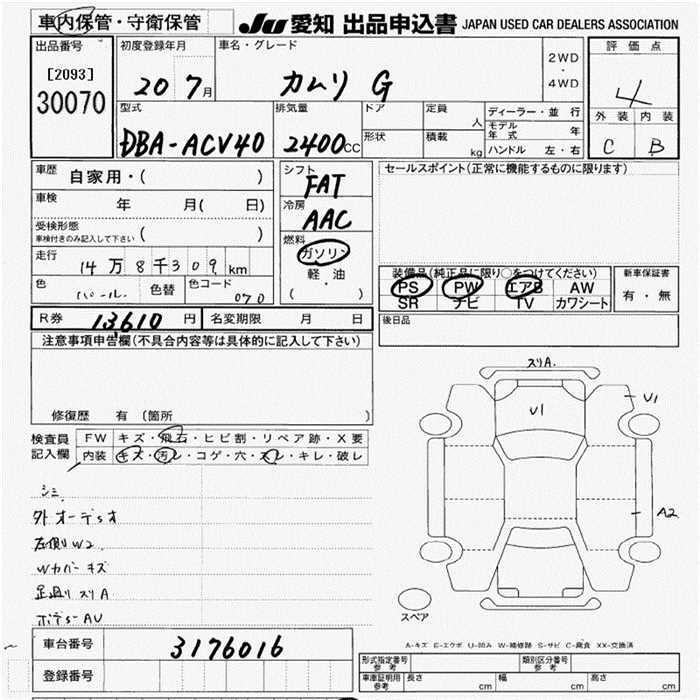 車内保管・守衛保管
JU 愛知 出品申込書 JAPAN USED CAR DEALERS ASSOCIATION
出品番号
[2093]
30070
初度登録年月
20 7月
車名・グレード
カムリ G
2WD
・
4WD
評価点
4
外装 内装
C B
型式
DBA-ACV40
排気量
2400cc
ドア
形状
定員
人
積載
kg
ディーラー・並行
モデル年式 年
ハンドル 左・右
車歴
自家用・( )
車検
年 月( 日)
受検形態
車検付きのみ記入して下さい ( )
走行
14万8千309km
色
パール
色替
色コード
070
シフト
FAT
冷房
AAC
燃料
ガソリン
軽・油
( ・ )
セールスポイント(正常に機能するものに限ります)
装備品(純正品に限り○をつけてください)
PS PW エアB AW
SR ナビ TV カワシート
新車保証書
有・無
R券 13,610 円
名変期限 月 日
後日品
注意事項申告欄(不具合内容等は具体的に記入して下さい)
修復歴 有 〔箇所 〕
検査員
記入欄
FW キズ・飛石・ヒビ割・リペア跡・X要
内装 キズ・汚レ・コゲ・穴・スレ・キレ・破レ
シミ
外オーディオ
左側W2
Wカバーキズ
足廻りスリA
ボデーAU
スリA.
U1
U1
A2
スペア
A-キズ E-エクボ U-凹み W-補修跡 S-サビ C-腐食 XX-交換済
車台番号
3176016
登録番号
形式指定番号
参考
類別区分番号
参考
車庫証明用
参考
長さ cm
幅 cm
高さ cm